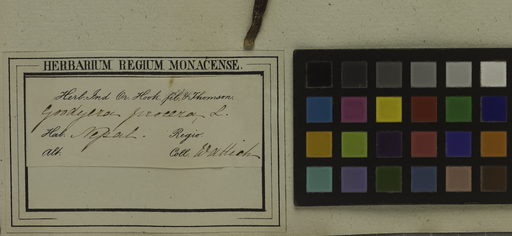 HERBARIUM REGIUM MONACENSE.
Herb. Ind. Or. Hook. fil. & Thomson.
Goodyera procera, L.
Hab. Nepal. Regio
Alt. Coll. Wallich